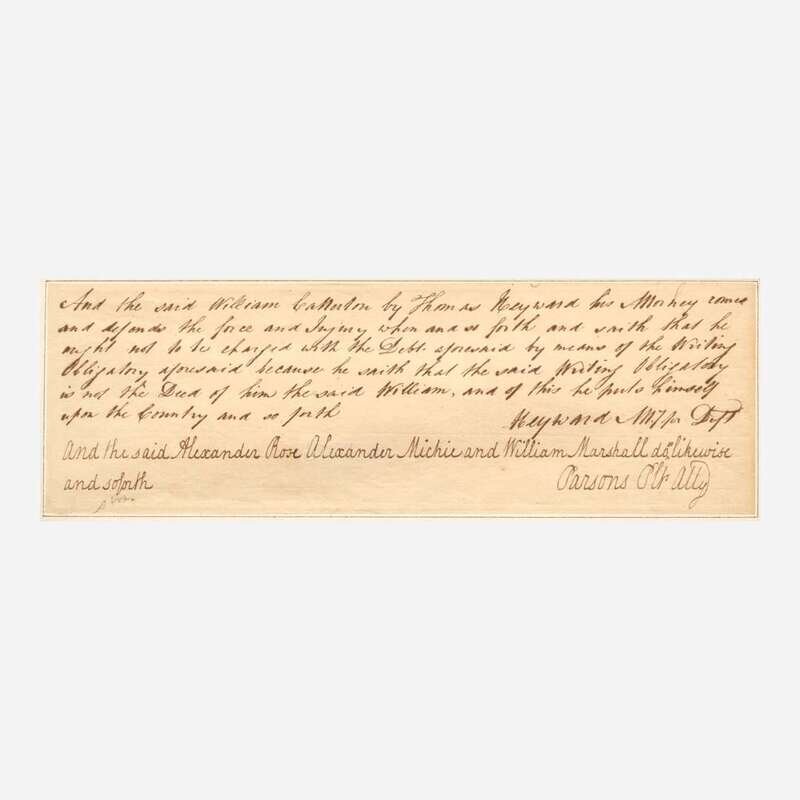 And the said William Catterton by Thomas Heyward his Attorney comes
and defends the force and Injury when and so forth and saith that he
ought not to be charged with the Debt aforesaid by means of the Writing
Obligatory aforesaid because he saith that the said Writing Obligatory
is not the Deed of him the said William, and of this he puts himself
upon the Country and so forth
Heyward Atty for Deft
And the said Alexander Rose Alexander Michie and William Marshall do likewise
and so forth
Parsons Plts Atty